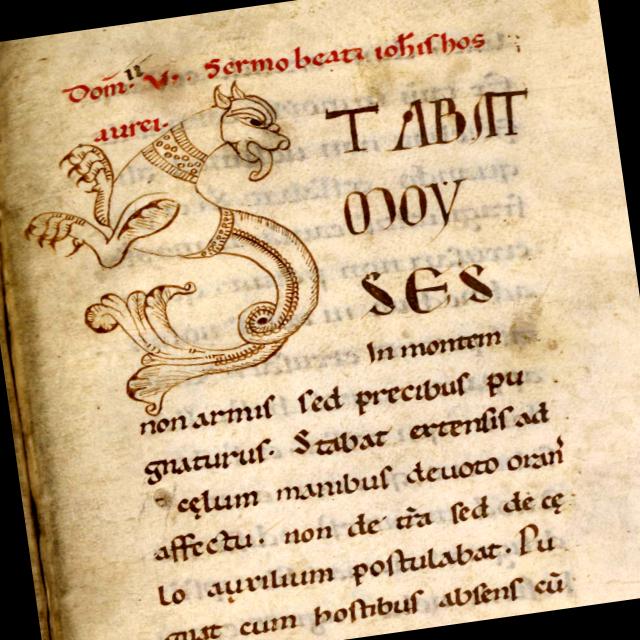 Dom̄ V. Sermo beati ioh̄is hos
aurei.
STABAT
MOY
SES
In montem
non armis sed precibus pu
gnaturus. Stabat extensis ad
cęlum manibus deuoto oran̄
affectu. non de t̄ra sed de cę
lo auxilium postulabat. Pu
gnat cum hostibus absens cū